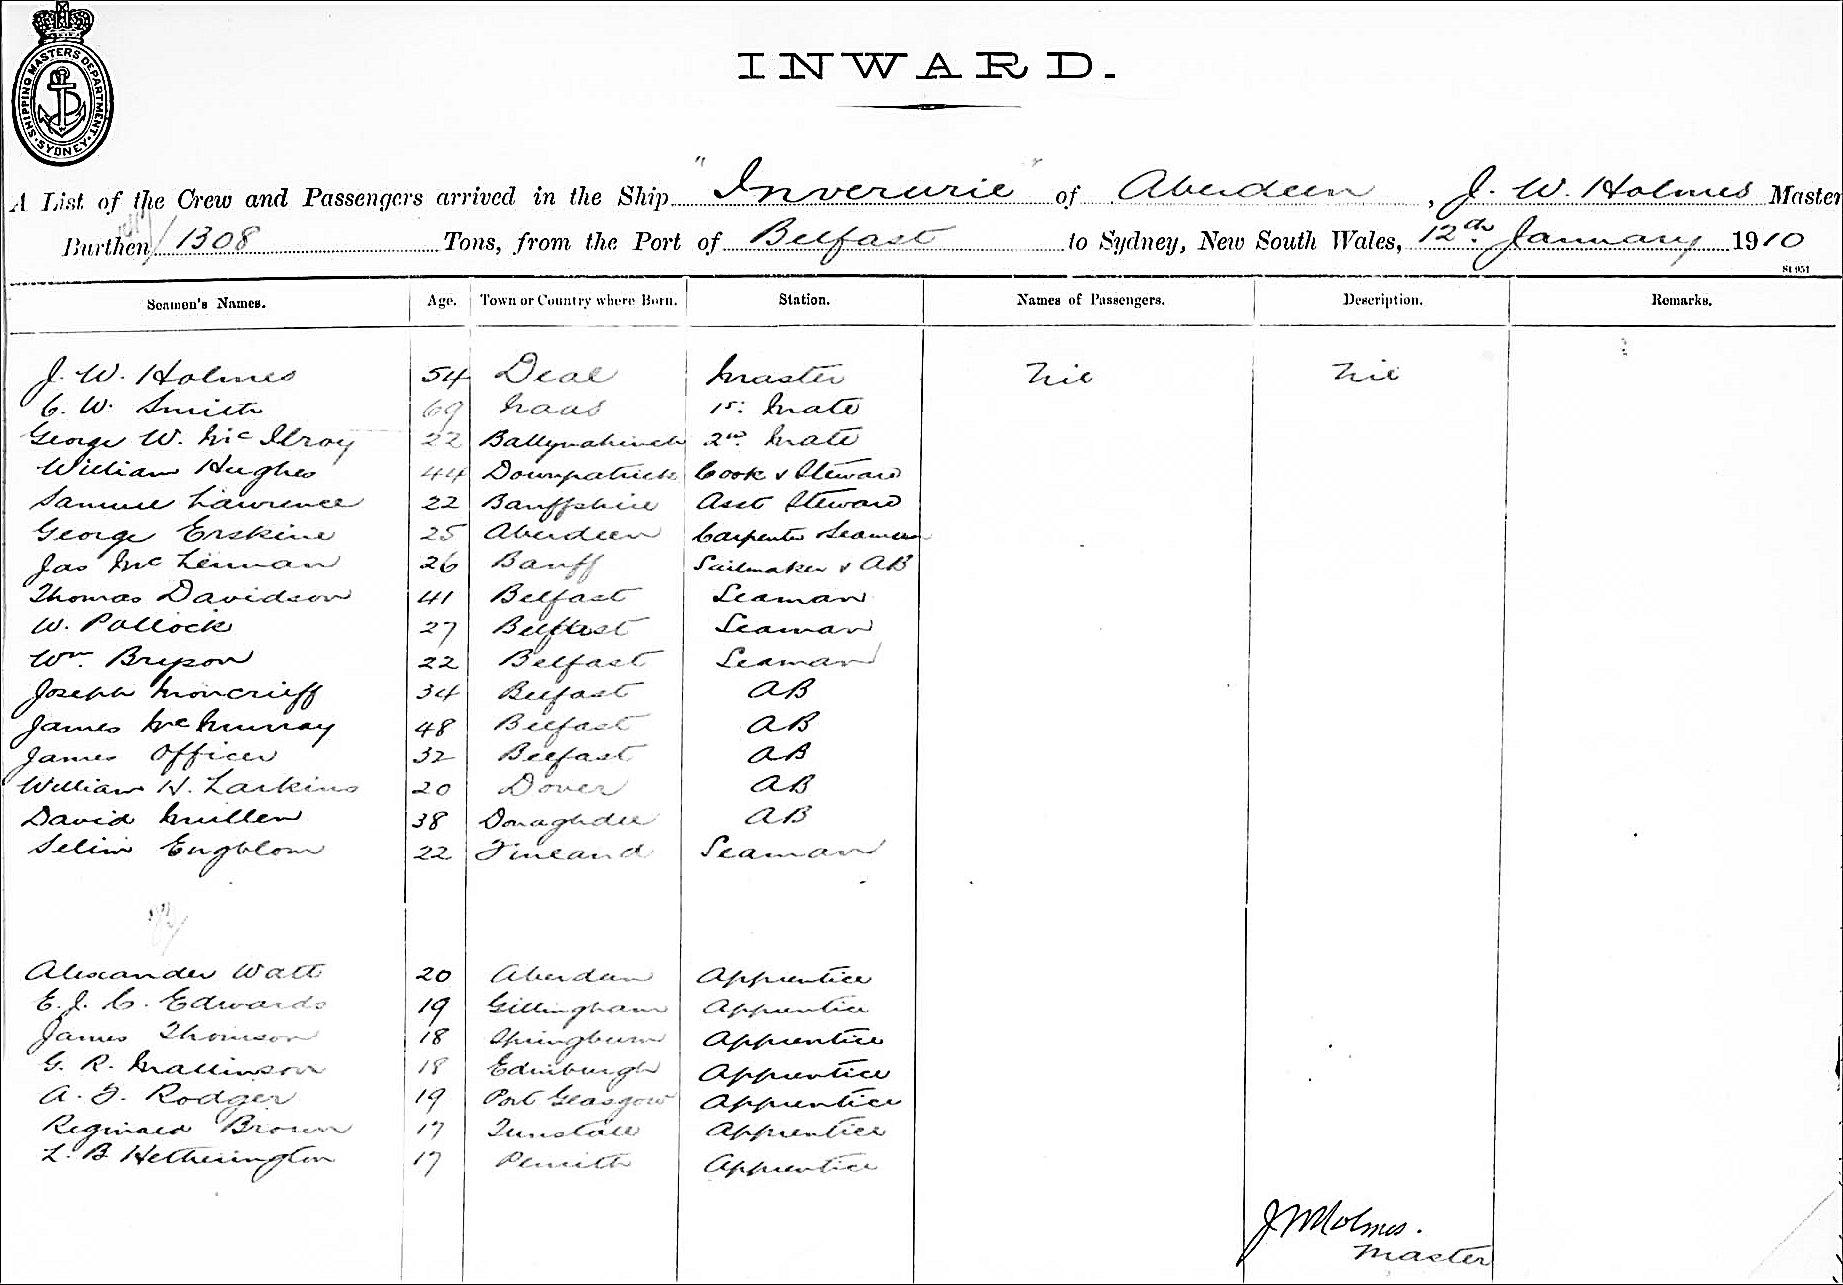 SHIPPING MASTERS DEPARTMENT · SYDNEY ·
INWARD.
A List of the Crew and Passengers arrived in the Ship "Inverurie" of Aberdeen, J. W. Holmes Master
Burthen 1308 Tons, from the Port of Belfast to Sydney, New South Wales, 12th January 1910
St 951
Seamen's Names. Age. Town or Country where Born. Station. Names of Passengers. Description. Remarks.
J. W. Holmes 54 Deal Master Nil Nil
C. W. Smith 69 Naas 1st Mate
George W. McIlroy 22 Ballynahinch 2nd Mate
William Hughes 44 Downpatrick Cook & Steward
Samuel Lawrence 22 Banffshire Asst Steward
George Erskine 25 Aberdeen Carpenter Seaman
Jas McLennan 26 Banff Sailmaker & AB
Thomas Davidson 41 Belfast Seaman
W. Pollock 27 Belfast Seaman
Wm. Bryson 22 Belfast Seaman
Joseph Moncrieff 34 Belfast AB
James McMurray 48 Belfast AB
James Officer 32 Belfast AB
William H. Larkins 20 Dover AB
David Mullen 38 Donaghdee AB
Selim Engblom 22 Finland Seaman
Alexander Watt 20 Aberdeen Apprentice
E. J. C. Edwards 19 Gillingham Apprentice
James Thomson 18 Springburn Apprentice
G. R. Mallinson 18 Edinburgh Apprentice
A. F. Rodger 19 Port Glasgow Apprentice
Reginald Brown 17 Tunstall Apprentice
L. B. Hetherington 17 Penrith Apprentice
J W Holmes.
Master